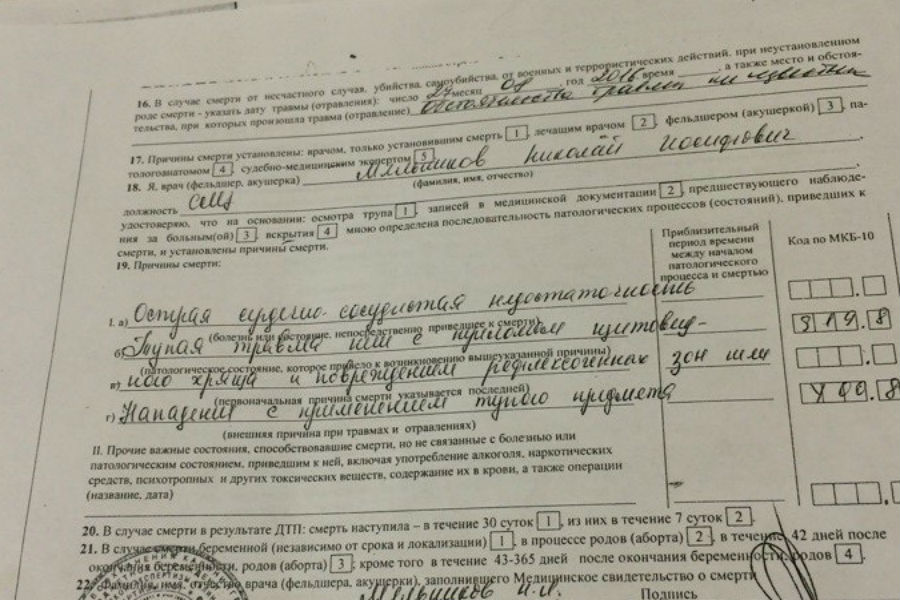 16. В случае смерти от несчастного случая, убийства, самоубийства, от военных и террористических действий, при неустановленном
роде смерти - указать дату травмы (отравления): число 27 месяц 08 год 2016 время , а также место и обстоя-
тельства, при которых произошла травма (отравление) Обстоятельства травмы не известны
17. Причины смерти установлены: врачом, только установившим смерть 1, лечащим врачом 2, фельдшером (акушеркой) 3, па-
тологоанатомом 4, судебно-медицинским экспертом 5
18. Я, врач (фельдшер, акушерка) Мельников Николай Иосифович
(фамилия, имя, отчество)
должность СМЭ
удостоверяю, что на основании: осмотра трупа 1, записей в медицинской документации 2, предшествующего наблюде-
ния за больным(ой) 3, вскрытия 4 мною определена последовательность патологических процессов (состояний), приведших к
смерти, и установлены причины смерти.
19. Причины смерти:
Приблизительный
период времени
между началом
патологического
процесса и смертью
Код по МКБ-10
I. а) Острая сердечно-сосудистая недостаточность
(болезнь или состояние, непосредственно приведшее к смерти)
б) Тупая травма шеи с переломом щитовид-
S19.8
(патологическое состояние, которое привело к возникновению вышеуказанной причины)
в) ного хряща и повреждением рефлексогенных зон шеи
(первоначальная причина смерти указывается последней)
г) Нападение с применением тупого предмета
Y00.8
(внешняя причина при травмах и отравлениях)
II. Прочие важные состояния, способствовавшие смерти, но не связанные с болезнью или
патологическим состоянием, приведшим к ней, включая употребление алкоголя, наркотических
средств, психотропных и других токсических веществ, содержание их в крови, а также операции
(название, дата)
20. В случае смерти в результате ДТП: смерть наступила – в течение 30 суток 1, из них в течение 7 суток 2.
21. В случае смерти беременной (независимо от срока и локализации) 1, в процессе родов (аборта) 2, в течение 42 дней после
окончания беременности, родов (аборта) 3; кроме того в течение 43-365 дней после окончания беременности, родов 4.
22. Фамилия, имя, отчество врача (фельдшера, акушерки), заполнившего Медицинское свидетельство о смерти
Мельников Н.И.
Подпись